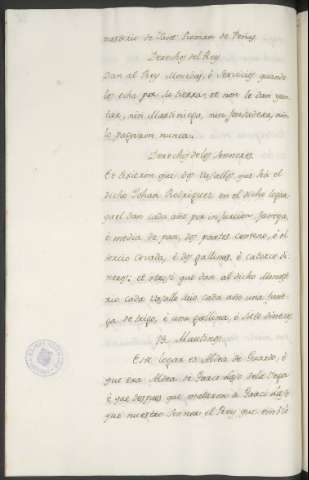 nasterio de Sant Roman de Peñas
Derechos del Rey
Dan al Rey Monedas, è Servicios quando
los echa por la tierra: et non le dan yan-
tar, nin Martiniega, nin fonsadera, nin
lo pagaron nunca.
Derechos de los Sennores
Et dixieron que los Vasallos que há el
dicho Johan Rodriguez en el dicho logar
quel dan cada año por infurcion fanega
è media de pan, dos partes centeno, è el
tercio cevada, è dos gallinas, è catorce di-
neros: et otrosi que dan al dicho Monest
erio cada Vasallo suio cada año una fane-
ga de trigo, è una gallina, è siete dineros
Mantinos
Este logar es Aldea de Guardo, è
que era Aldea de Garci Laso dela Vega
è que despues que mataron à Garci Laso
que nuestro Sennor el Rey que